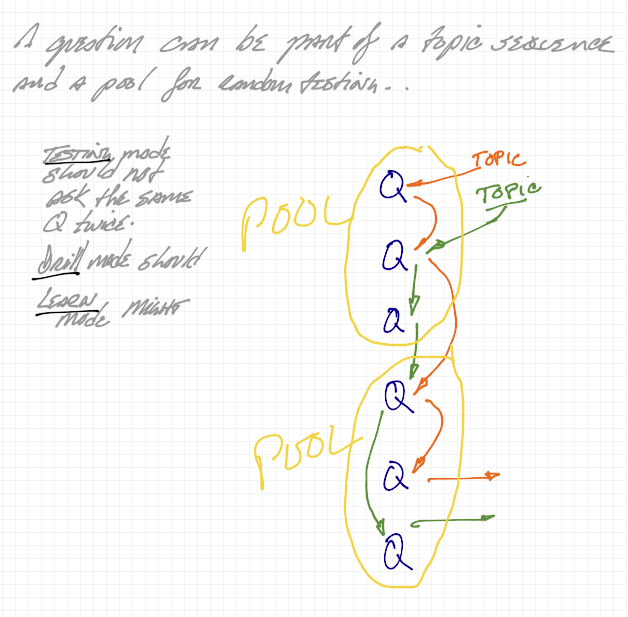 A question can be part of a topic sequence
and a pool for random testing...
TESTING mode
should not
ask the same
Q twice.
Drill mode should
LEARN might
mode
TOPIC
TOPIC
POOL
Q
Q
Q
Q
POOL
Q
Q